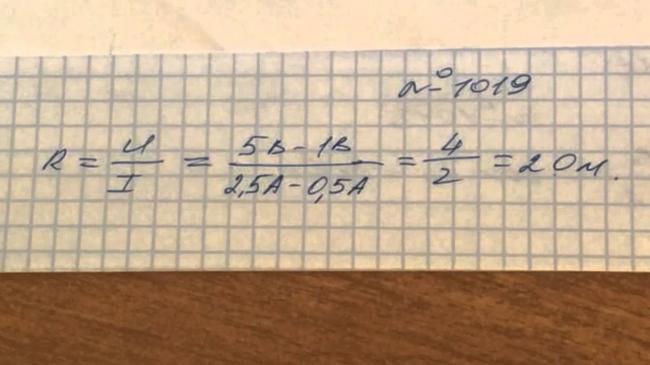 №1019
R = U/I = (5В - 1В)/(2,5А - 0,5А) = 4/2 = 2 Ом.